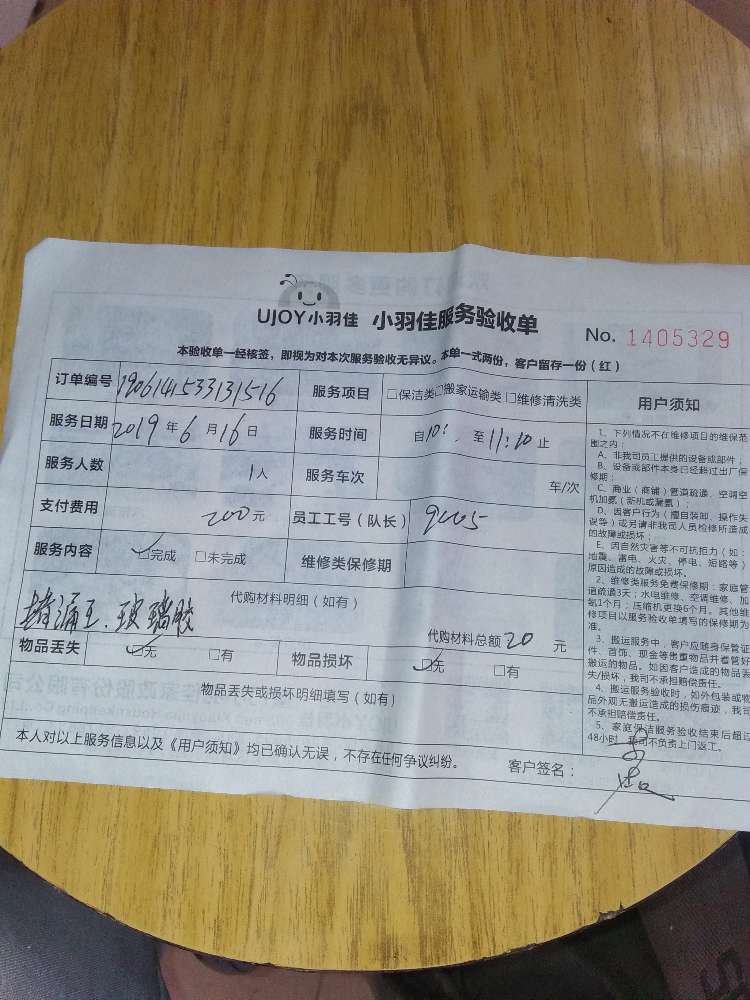 UJOY小羽佳 小羽佳服务验收单
No. 1405329
本验收单一经核签，即视为对本次服务验收无异议。本单一式两份，客户留存一份（红）
订单编号 服务项目 □保洁类□搬家运输类 □维修清洗类
服务日期 2019 年 6 月 16 日 服务时间 自10: 至 11:10 止
服务人数 1人 服务车次 车/次
支付费用 200元 员工工号（队长） 9005
服务内容 □完成 □未完成 维修类保修期
代购材料明细（如有）
玻璃胶
代购材料总额 20 元
物品丢失 □无 □有 物品损坏 □无 □有
物品丢失或损坏明细填写（如有）
本人对以上服务信息以及《用户须知》均已确认无误，不存在任何争议纠纷。 客户签名：
用户须知
1、下列情况不在维修项目的维保范
围之内：
A、非我司员工提供的设备或部件；
B、设备或部件本身已经超过出厂保
修期；
C、商业（商铺）管道疏通、空调空
机加氨（新机或漏氨）
D、因客户行为（擅自装卸、操作失
误等）或另请非我司人员检修所造成
的故障或损坏；
E、因自然灾害等不可抗拒力（如：
地震、雷电、火灾、停电、短路等）
原因造成的故障或损坏。
2、维修类服务免费保修期：家庭管
道疏通3天；水电维修、空调维修、加
氨1个月；压缩机更换6个月。其他维
修项目以服务验收单填写的保修期为
准。
3、搬运服务中，客户应随身保管证
件、首饰、现金等贵重物品并看管好
搬运的物品。如因客户造成的物品丢
失/损坏，我司不承担赔偿责任。
4、搬运服务验收时，如外包装或物
品外观无搬运造成的损伤痕迹，我司
不承担赔偿责任。
5、家庭保洁服务验收结束后超过
48小时，我司不负责上门返工。